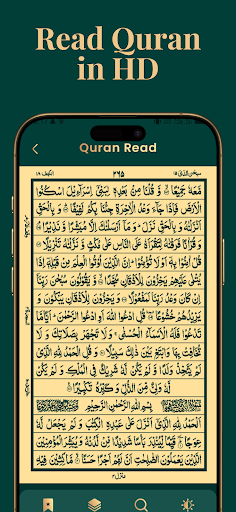 Read Quran
in HD
Quran Read
مَعَهٗ جَمِیْعًا ۙ وَّ قُلْنَا مِنْۢ بَعْدِهٖ لِبَنِیْۤ اِسْرَآءِیْلَ اسْكُنُوا
الْاَرْضَ فَاِذَا جَآءَ وَعْدُ الْاٰخِرَةِ جِئْنَا بِكُمْ لَفِیْفًا ؕ وَ بِالْحَقِّ
اَنْزَلْنٰهُ وَ بِالْحَقِّ نَزَلَ ؕ وَ مَاۤ اَرْسَلْنٰكَ اِلَّا مُبَشِّرًا وَّ نَذِیْرًا ۘ وَ
قُرْاٰنًا فَرَقْنٰهُ لِتَقْرَاَهٗ عَلَى النَّاسِ عَلٰى مُكْثٍ وَّ نَزَّلْنٰهُ تَنْزِیْلًا
قُلْ اٰمِنُوْا بِهٖۤ اَوْ لَا تُؤْمِنُوْا ؕ اِنَّ الَّذِیْنَ اُوْتُوا الْعِلْمَ مِنْ قَبْلِهٖۤ اِذَا
یُتْلٰى عَلَیْهِمْ یَخِرُّوْنَ لِلْاَذْقَانِ سُجَّدًا وَّ یَقُوْلُوْنَ سُبْحٰنَ رَبِّنَاۤ
اِنْ كَانَ وَعْدُ رَبِّنَا لَمَفْعُوْلًا وَ یَخِرُّوْنَ لِلْاَذْقَانِ یَبْكُوْنَ وَ
یَزِیْدُهُمْ خُشُوْعًا قُلِ ادْعُوا اللّٰهَ اَوِ ادْعُوا الرَّحْمٰنَ ؕ اَیًّا مَّا
تَدْعُوْا فَلَهُ الْاَسْمَآءُ الْحُسْنٰى ۚ وَ لَا تَجْهَرْ بِصَلَاتِكَ وَ لَا
تُخَافِتْ بِهَا وَ ابْتَغِ بَیْنَ ذٰلِكَ سَبِیْلًا وَ قُلِ الْحَمْدُ لِلّٰهِ الَّذِیْ
لَمْ یَتَّخِذْ وَلَدًا وَّ لَمْ یَكُنْ لَّهٗ شَرِیْكٌ فِی الْمُلْكِ وَ لَمْ یَكُنْ
لَّهٗ وَلِیٌّ مِّنَ الذُّلِّ وَ كَبِّرْهُ تَكْبِیْرًا
بِسْمِ اللّٰهِ الرَّحْمٰنِ الرَّحِیْمِ
اَلْحَمْدُ لِلّٰهِ الَّذِیْۤ اَنْزَلَ عَلٰى عَبْدِهِ الْكِتٰبَ وَ لَمْ یَجْعَلْ لَّهٗ
عِوَجًا قَیِّمًا لِّیُنْذِرَ بَاْسًا شَدِیْدًا مِّنْ لَّدُنْهُ وَ یُبَشِّرَ الْمُؤْمِنِیْنَ
الَّذِیْنَ یَعْمَلُوْنَ الصّٰلِحٰتِ اَنَّ لَهُمْ اَجْرًا حَسَنًا مَّاكِثِیْنَ فِیْهِ